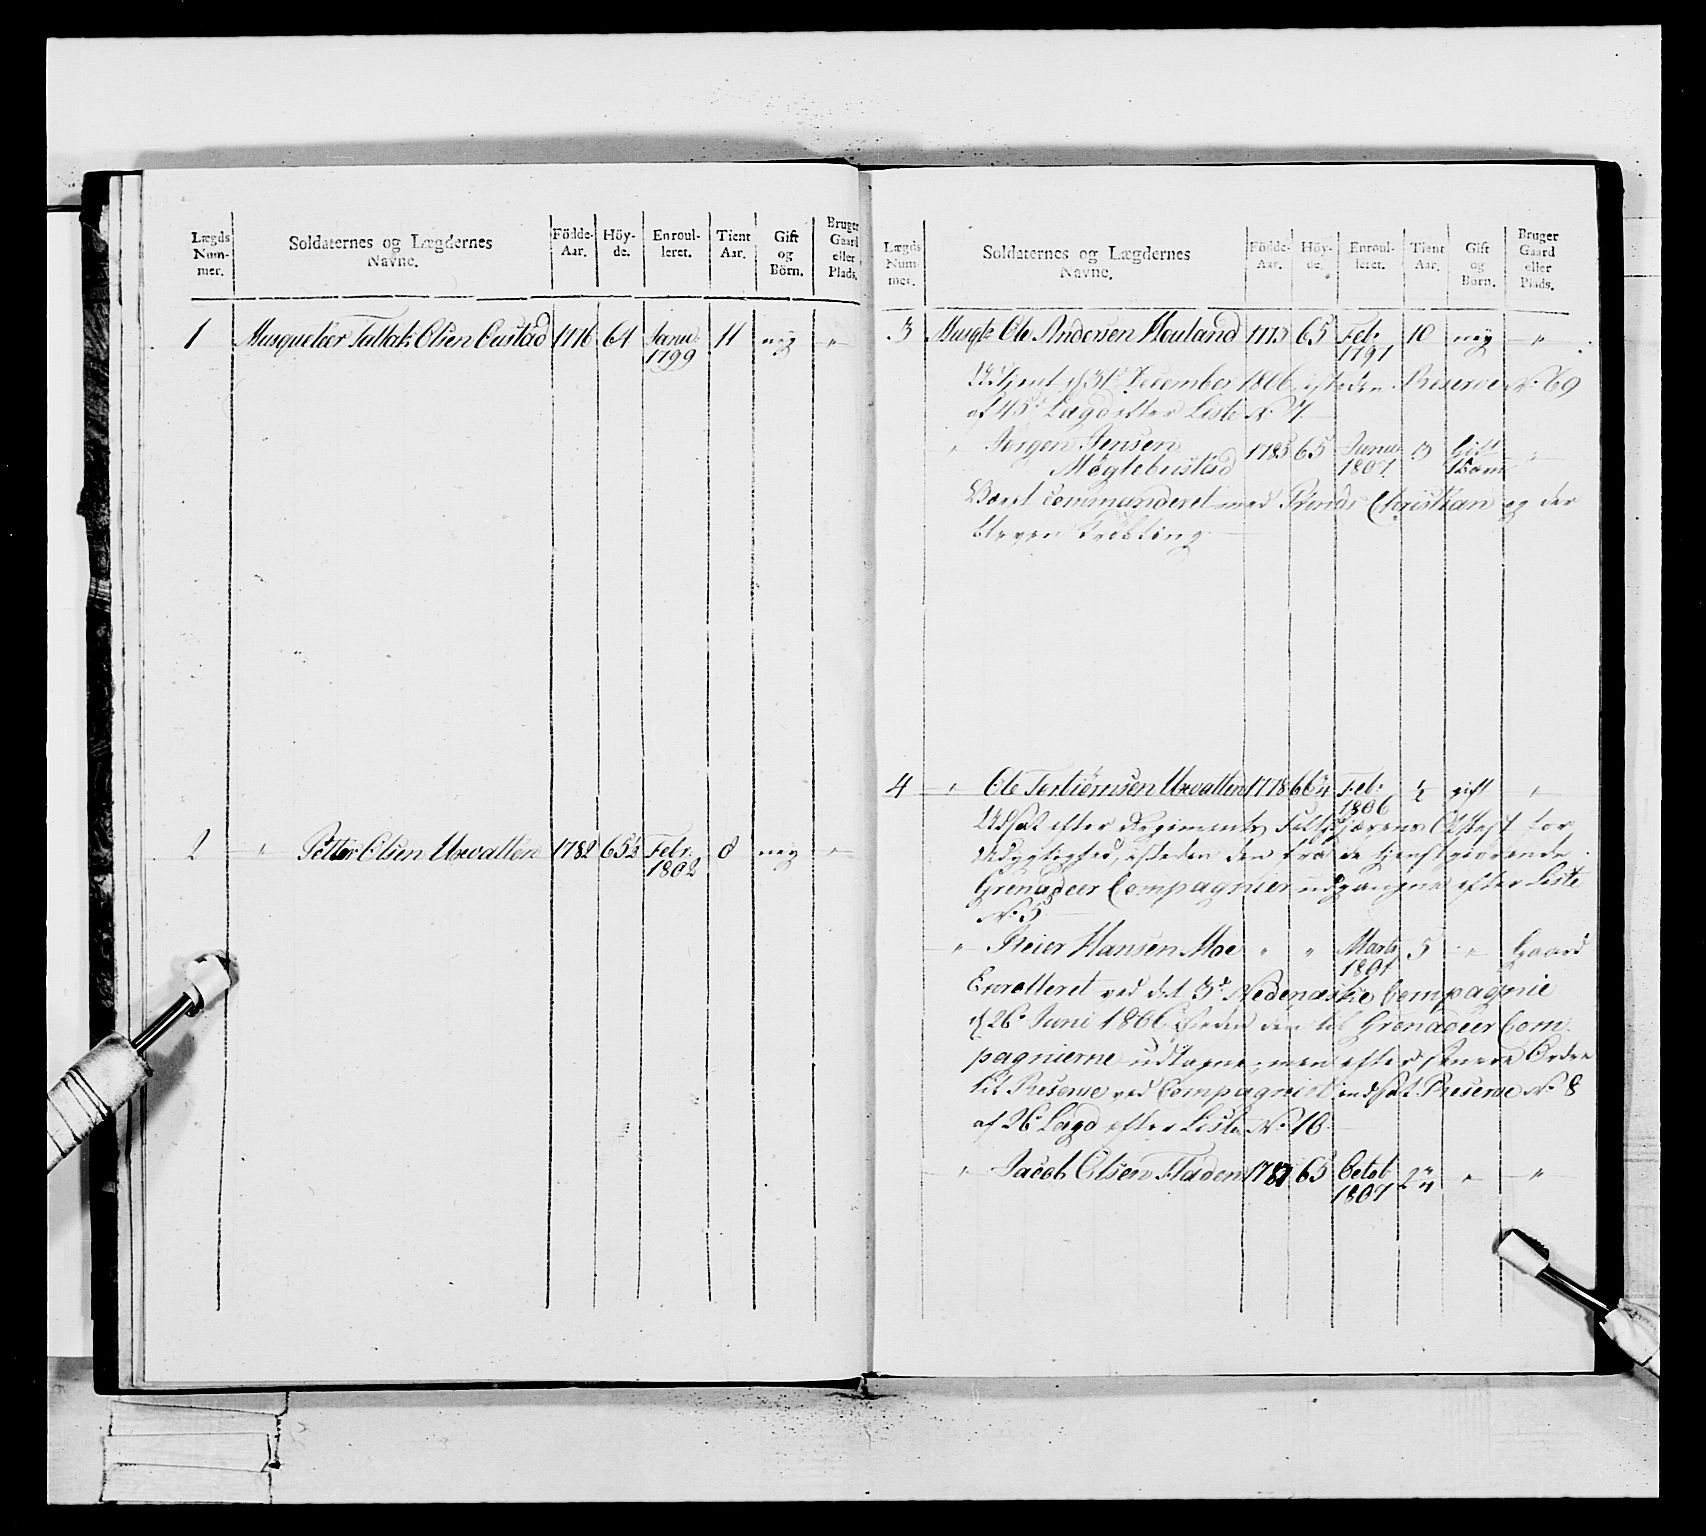 Lægds Nummer.
Soldaternes og Lægdernes Navne.
Födde-Aar.
Höyde.
Enroulleret.
Tient Aar.
Gift og Börn.
Bruger Gaard eller Plads.
1 Musqueteer Tallak Olsen Eustad 1776 64 Janu. 1799 11 ney "
2 " Petter Olsen Uxvatten 1782 65½ Febr. 1802 8 ney "
Lægds Nummer.
Soldaternes og Lægdernes Navne.
Födde-Aar.
Höyde.
Enroulleret.
Tient Aar.
Gift og Börn.
Bruger Gaard eller Plads.
3 Musqt: Ole Andersen Houland 1773 65 Feb. 1797 10 ney "
Udtient d 31te December 1806, isteden Reserve No 69
af 45de Lægd efter Liste No 7
" Jørgen Jensen
Møglebustad 1785 65 Janu. 1807. 3 Gift 1 Barn "
Været commanderet med Prinds Christian og der
bleven Frøbling
4 " Ole Torbiørnsen Uxvatten 1778 66¼ Feb. 1806 ½ gift "
Udsat efter Regiments Feltskjærens Attest for
Udygtighed, isteden den fra de tjenstgiørende
Grenadeer Compagnier udgangne efter Liste
No 5
" Reier Hansen Moe " " Marts 1801 5 " Gaard
Enrolleret ved det 3de Nedenæske Compagnie
d 26 Juni 1806 isteden den til Grenadeer Com-
pagnierne udtagne; men efter senere Ordre
til Reserve ved Compagniet indsat Reserve No 8
af 26 Lægd efter Liste No 10
" Jacob Olsen Fladen 1787 65 Octob 1807 2¼ " "